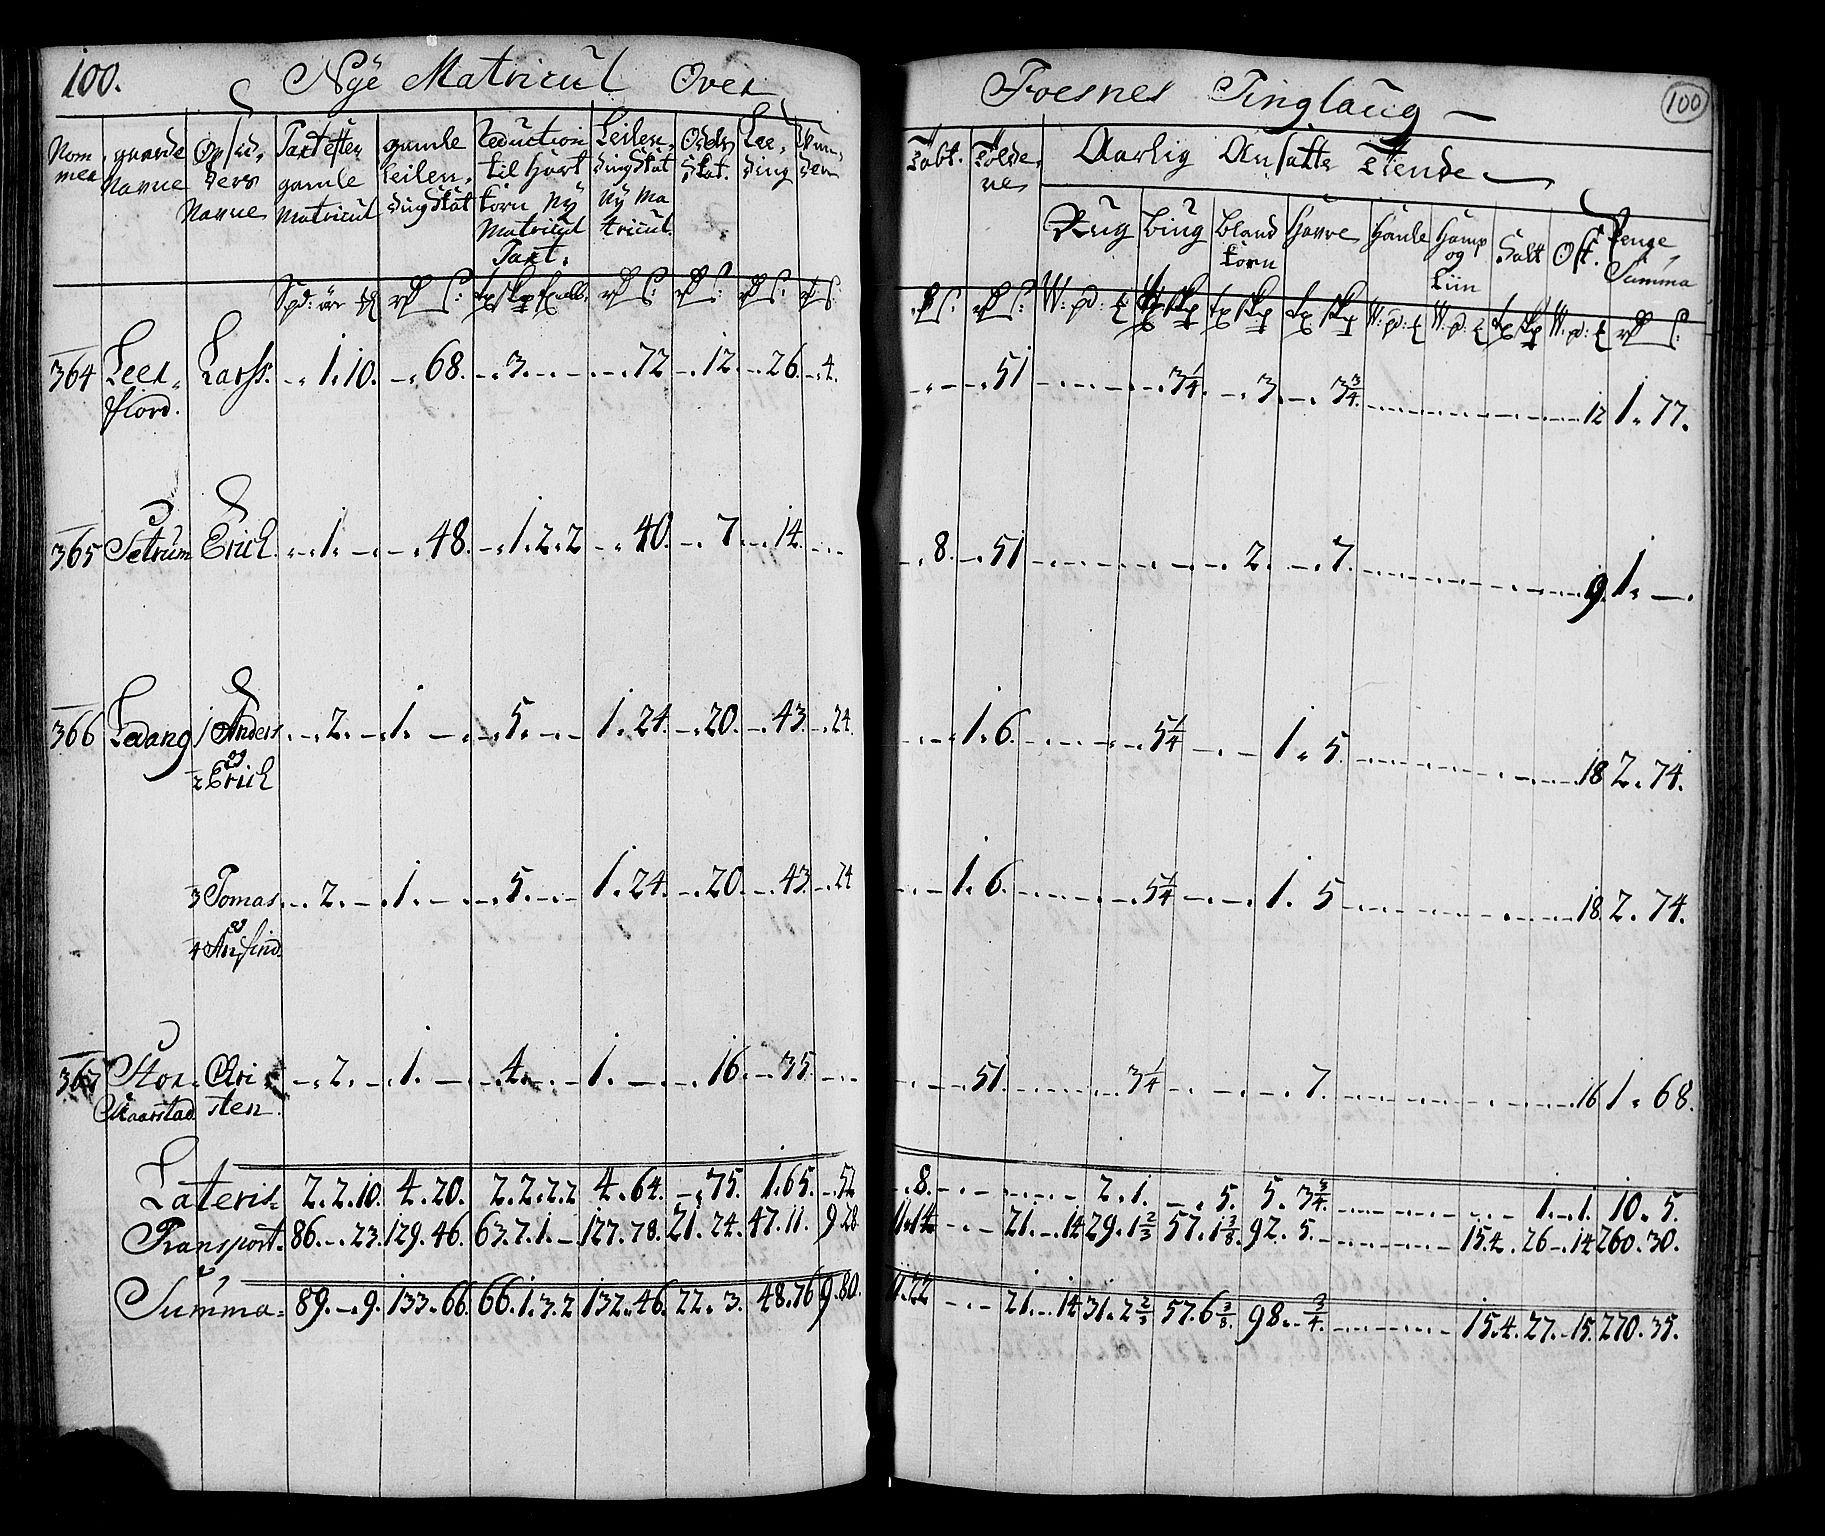 100. Nÿe Matricul Over
Foesnes Tinglaug
100
Nom mer | gaarde Navne | Opsid, ders Navne | Taxt efter gamle Matricul | gamle Leilen, dingskat | Reduction til Hart korn nÿ Matricul Taxt: | Leilen, dingskat nÿ Ma tricul. | Odels skat. | Lee, ding
Tabt. | Aarlig Ansatte Tiende
Rug | Bÿug | Bland korn | Havre | Homle | Hamp og Liin | Salt | Ost. | Penge Summa
364 Leer, fiord. Larss. - 1. 10. - 68. - 3. - - 72 - 12. - 26. - 4.
- - 51 - - 3¼. - 3. - 3¾. - 12 1. 77.
365 Setrum Erich. - 1. - - 48. - 1. 2. 2 - 40. - 7 - 14. - -
- 8. - 51 - - 2. - 7. - 9. 1. -
366 Ledang 1 Anders og 2 Erich - 2. - 1. - - 5. - 1. 24. - 20. - 43. - 24.
- - 1. 6. - - 5¼ - - 1. 5. - 18 2. 74.
3 Tomas og 4 Arfind. - 2. - 1. - - 5. - 1. 24. - 20. - 43. - 24
- - 1. 6. - - 5¼ - - 1. 5 - 18. 2. 74.
367 Stor, Skaarstad Cri sten. - 2. - 1. - - 4. - 1. - - 16. - 35. - -
- - 51. - - 3¼ - - 7. - 16 1. 68.
Lateris 2. 2. 10. 4. 20. 2. 2. 2. 2 4. 64. - 75. 1. 65. - 52
. 8. - - - 2. 1. - 5. 5. 3¾. - 1. - 1. 10. 5.
Transport. 86. - 23. 129. 46. 63. 7. 1. - 127. 78. 21. 24. 47. 11. 9 28
11. 14 - - 21. - 14 29. 1⅔ 57. 1⅜. 92. 5. - 15. 4. 26 - 14 260. 30.
Summa 89. - 9. 133. 66. 66. 1. 3. 2 132. 46. 22. 3. 48. 76 9. 80.
11. 22 - - 21. - 14 31. 2⅔ 57. 6⅜ 98. - ¾. - 15. 4. 27. - 15. 270. 35.